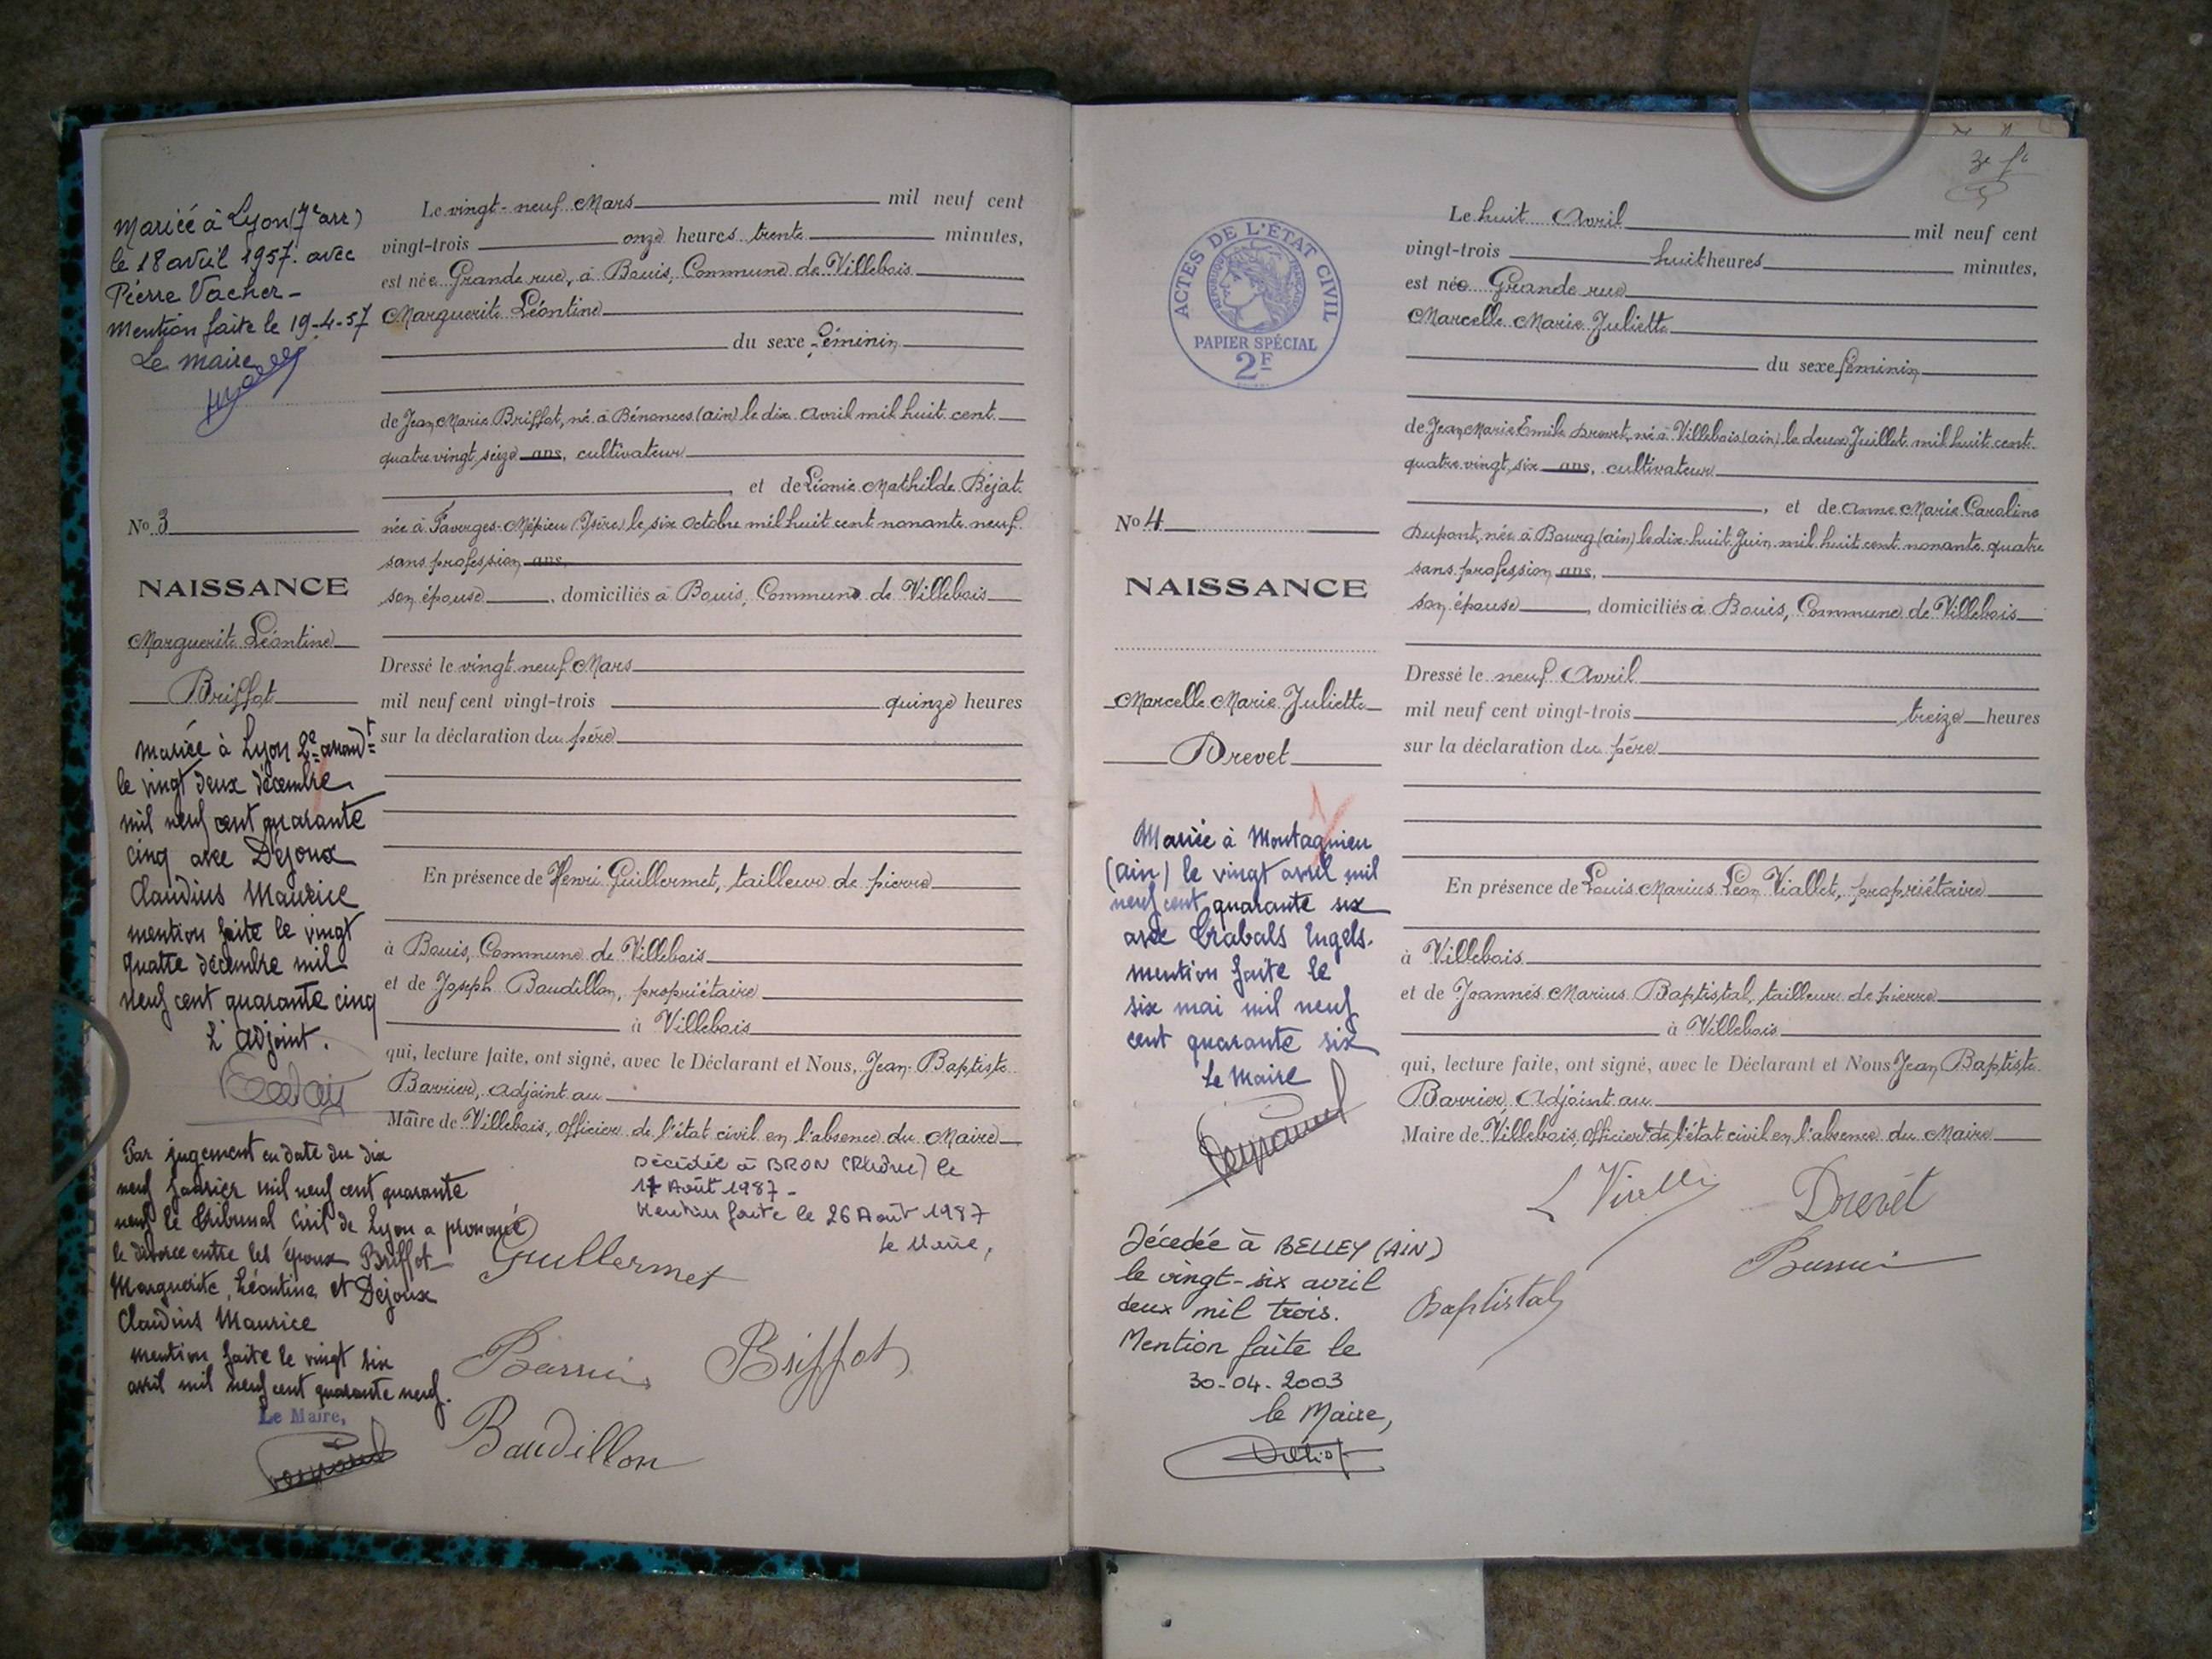 Mariée à Lyon (7e arr)
le 18 avril 1957. avec
Pierre Vacher -
Mention faite le 19-4-57
Le Maire
No 3
NAISSANCE
Marguerite Léontine
Briffot
Mariée à Lyon 2e arrondt
le vingt deux décembre
mil neuf cent quarante
cinq avec Dejoux
Claudius Maurice
mention faite le vingt
quatre décembre mil
neuf cent quarante cinq
L'Adjoint.
Par jugement en date du dix
neuf janvier mil neuf cent quarante
neuf le tribunal civil de Lyon a prononcé
le divorce entre les époux Briffot
Marguerite, Léontine et Dejoux
Claudius Maurice
mention faite le vingt six
avril mil neuf cent quarante neuf.
Le Maire,
Le vingt-neuf Mars mil neuf cent
vingt-trois onze heures trente minutes,
est née Grande rue, à Bouis, Commune de Villebois
Marguerite Léontine
du sexe féminin
de Jean Marie Briffot, né à Bénonces (ain) le dix Avril mil huit cent
quatre vingt seize ans, cultivateur
, et de Léonie Mathilde Béjat
née à Faverges-Mépieu (Isère) le six Octobre mil huit cent nonante neuf
sans profession ans,
son épouse , domiciliés à Bouis, Commune de Villebois
Dressé le vingt neuf Mars
mil neuf cent vingt-trois quinze heures
sur la déclaration du père
En présence de Henri Guillermet, tailleur de pierre
à Bouis, Commune de Villebois
et de Joseph Baudillon, propriétaire
à Villebois
qui, lecture faite, ont signé, avec le Déclarant et Nous, Jean-Baptiste
Barrier, Adjoint au
Maire de Villebois, officier de l'état civil en l'absence du Maire
Décédée à BRON (Rhône) le
17 Août 1987 -
Mention faite le 26 Août 1987
Le Maire,
Guillermet
Barrier Briffot
Baudillon
3e ft
ACTES DE L'ÉTAT CIVIL
RÉPUBLIQUE FRANÇAISE
PAPIER SPÉCIAL
2F
No 4
NAISSANCE
Marcelle Marie Juliette
Drevet
Mariée à Montagnieu
(Ain) le vingt avril mil
neuf cent quarante six
avec Crabals Engels.
mention faite le
six mai mil neuf
cent quarante six
Le Maire
Décédée à BELLEY (AIN)
le vingt-six avril
deux mil trois.
Mention faite le
30-04-2003
le Maire,
Le huit Avril mil neuf cent
vingt-trois huit heures minutes,
est née Grande rue
Marcelle Marie Juliette
du sexe féminin
de Jean Marie Emile Drevet, né à Villebois (ain) le deux Juillet mil huit cent
quatre vingt six ans, cultivateur
, et de Anne Marie Caroline
Dupont, née à Bourg (ain) le dix-huit Juin mil huit cent nonante quatre
sans profession ans,
son épouse , domiciliés à Bouis, Commune de Villebois
Dressé le neuf Avril
mil neuf cent vingt-trois treize heures
sur la déclaration du père
En présence de Louis Marius Léon Viallet, propriétaire
à Villebois
et de Joannès Marius Baptistal, tailleur de pierre
à Villebois
qui, lecture faite, ont signé, avec le Déclarant et Nous Jean Baptiste
Barrier, Adjoint au
Maire de Villebois, officier de l'état civil en l'absence du Maire
L Viallet Drevet
Barrier
Baptistal